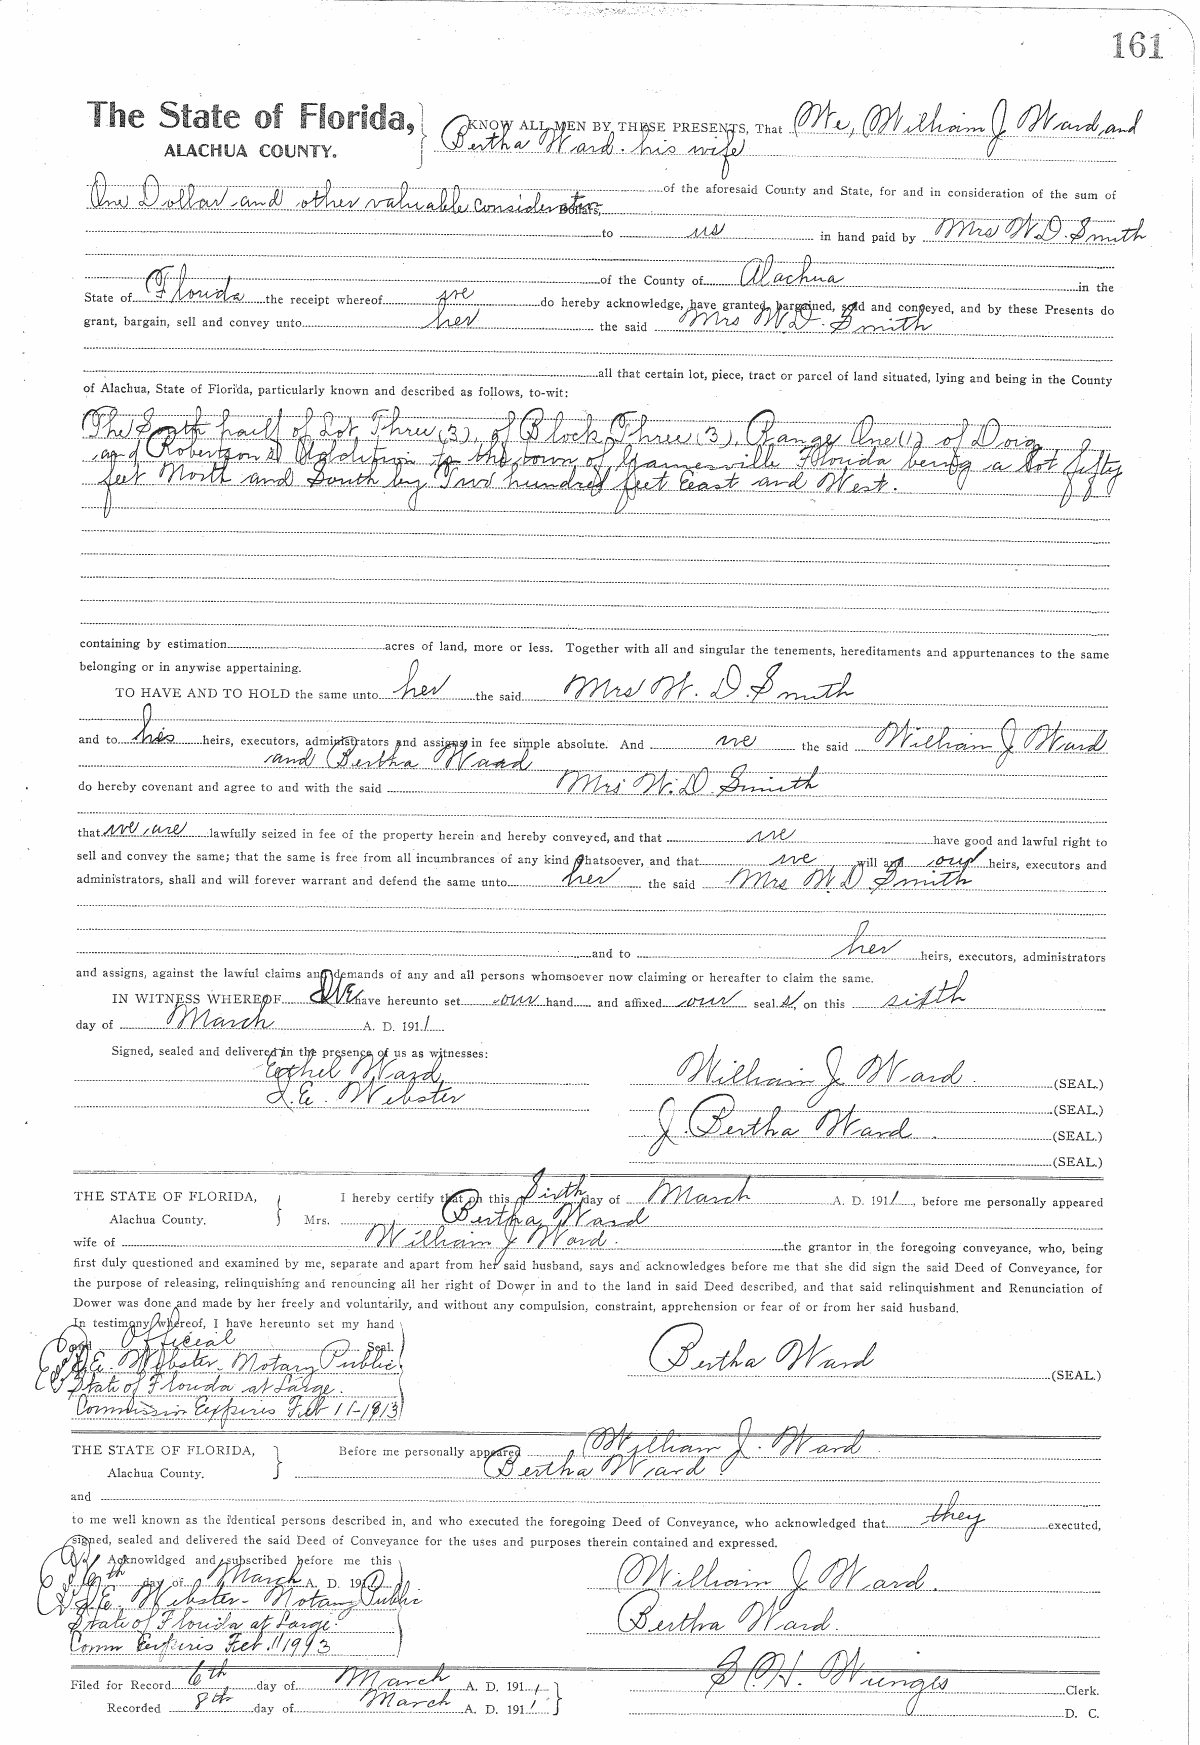 161
The State of Florida, KNOW ALL MEN BY THESE PRESENTS, That We, William J Ward, and
ALACHUA COUNTY. Bertha Ward. his wife
of the aforesaid County and State, for and in consideration of the sum of
One Dollar and other valuable consideration Dollars,
to us in hand paid by Mrs W.D. Smith
of the County of Alachua in the
State of Florida the receipt whereof we do hereby acknowledge, have granted, bargained, sold and conveyed, and by these Presents do
grant, bargain, sell and convey unto her the said Mrs W.D. Smith
all that certain lot, piece, tract or parcel of land situated, lying and being in the County
of Alachua, State of Florida, particularly known and described as follows, to-wit:
The South half of Lot Three (3), of Block Three (3), Range One (1) of Doig
and Robertson's Addition to the town of Gainesville Florida being a lot fifty
feet North and South by Two hundred feet East and West.
containing by estimation acres of land, more or less. Together with all and singular the tenements, hereditaments and appurtenances to the same
belonging or in anywise appertaining.
TO HAVE AND TO HOLD the same unto her the said Mrs W. D. Smith
and to his heirs, executors, administrators and assigns in fee simple absolute. And we the said William J Ward
and Bertha Ward
do hereby covenant and agree to and with the said Mrs W. D. Smith
that we are lawfully seized in fee of the property herein and hereby conveyed, and that we have good and lawful right to
sell and convey the same; that the same is free from all incumbrances of any kind whatsoever, and that we will and our heirs, executors and
administrators, shall and will forever warrant and defend the same unto her the said Mrs W. D Smith
and to her heirs, executors, administrators
and assigns, against the lawful claims and demands of any and all persons whomsoever now claiming or hereafter to claim the same.
IN WITNESS WHEREOF We have hereunto set our hand and affixed our seals, on this sixth
day of March A. D. 1911
Signed, sealed and delivered in the presence of us as witnesses:
Ethel Ward William J Ward. (SEAL.)
I.E. Webster (SEAL.)
J. Bertha Ward. (SEAL.)
(SEAL.)
THE STATE OF FLORIDA, I hereby certify that on this Sixth day of March A. D. 1911, before me personally appeared
Alachua County. Mrs. Bertha Ward
wife of William J Ward. the grantor in the foregoing conveyance, who, being
first duly questioned and examined by me, separate and apart from her said husband, says and acknowledges before me that she did sign the said Deed of Conveyance, for
the purpose of releasing, relinquishing and renouncing all her right of Dower in and to the land in said Deed described, and that said relinquishment and Renunciation of
Dower was done and made by her freely and voluntarily, and without any compulsion, constraint, apprehension or fear of or from her said husband.
In testimony whereof, I have hereunto set my hand
and Official Seal.
I.E. Webster. Notary Public Bertha Ward (SEAL.)
State of Florida at Large.
Commission Expires Feb 11-1913
THE STATE OF FLORIDA, Before me personally appeared William J. Ward
Alachua County. Bertha Ward
and
to me well known as the identical persons described in, and who executed the foregoing Deed of Conveyance, who acknowledged that they executed,
signed, sealed and delivered the said Deed of Conveyance for the uses and purposes therein contained and expressed.
Acknowldged and subscribed before me this
6th day of March A. D. 191 William J Ward.
I.E. Webster - Notary Public
State of Florida at Large. Bertha Ward.
Comm Expires Feb. 11 1913
Filed for Record 6th day of March A. D. 1911. S. H. Wienges Clerk.
Recorded 8th day of March A. D. 1911 D. C.